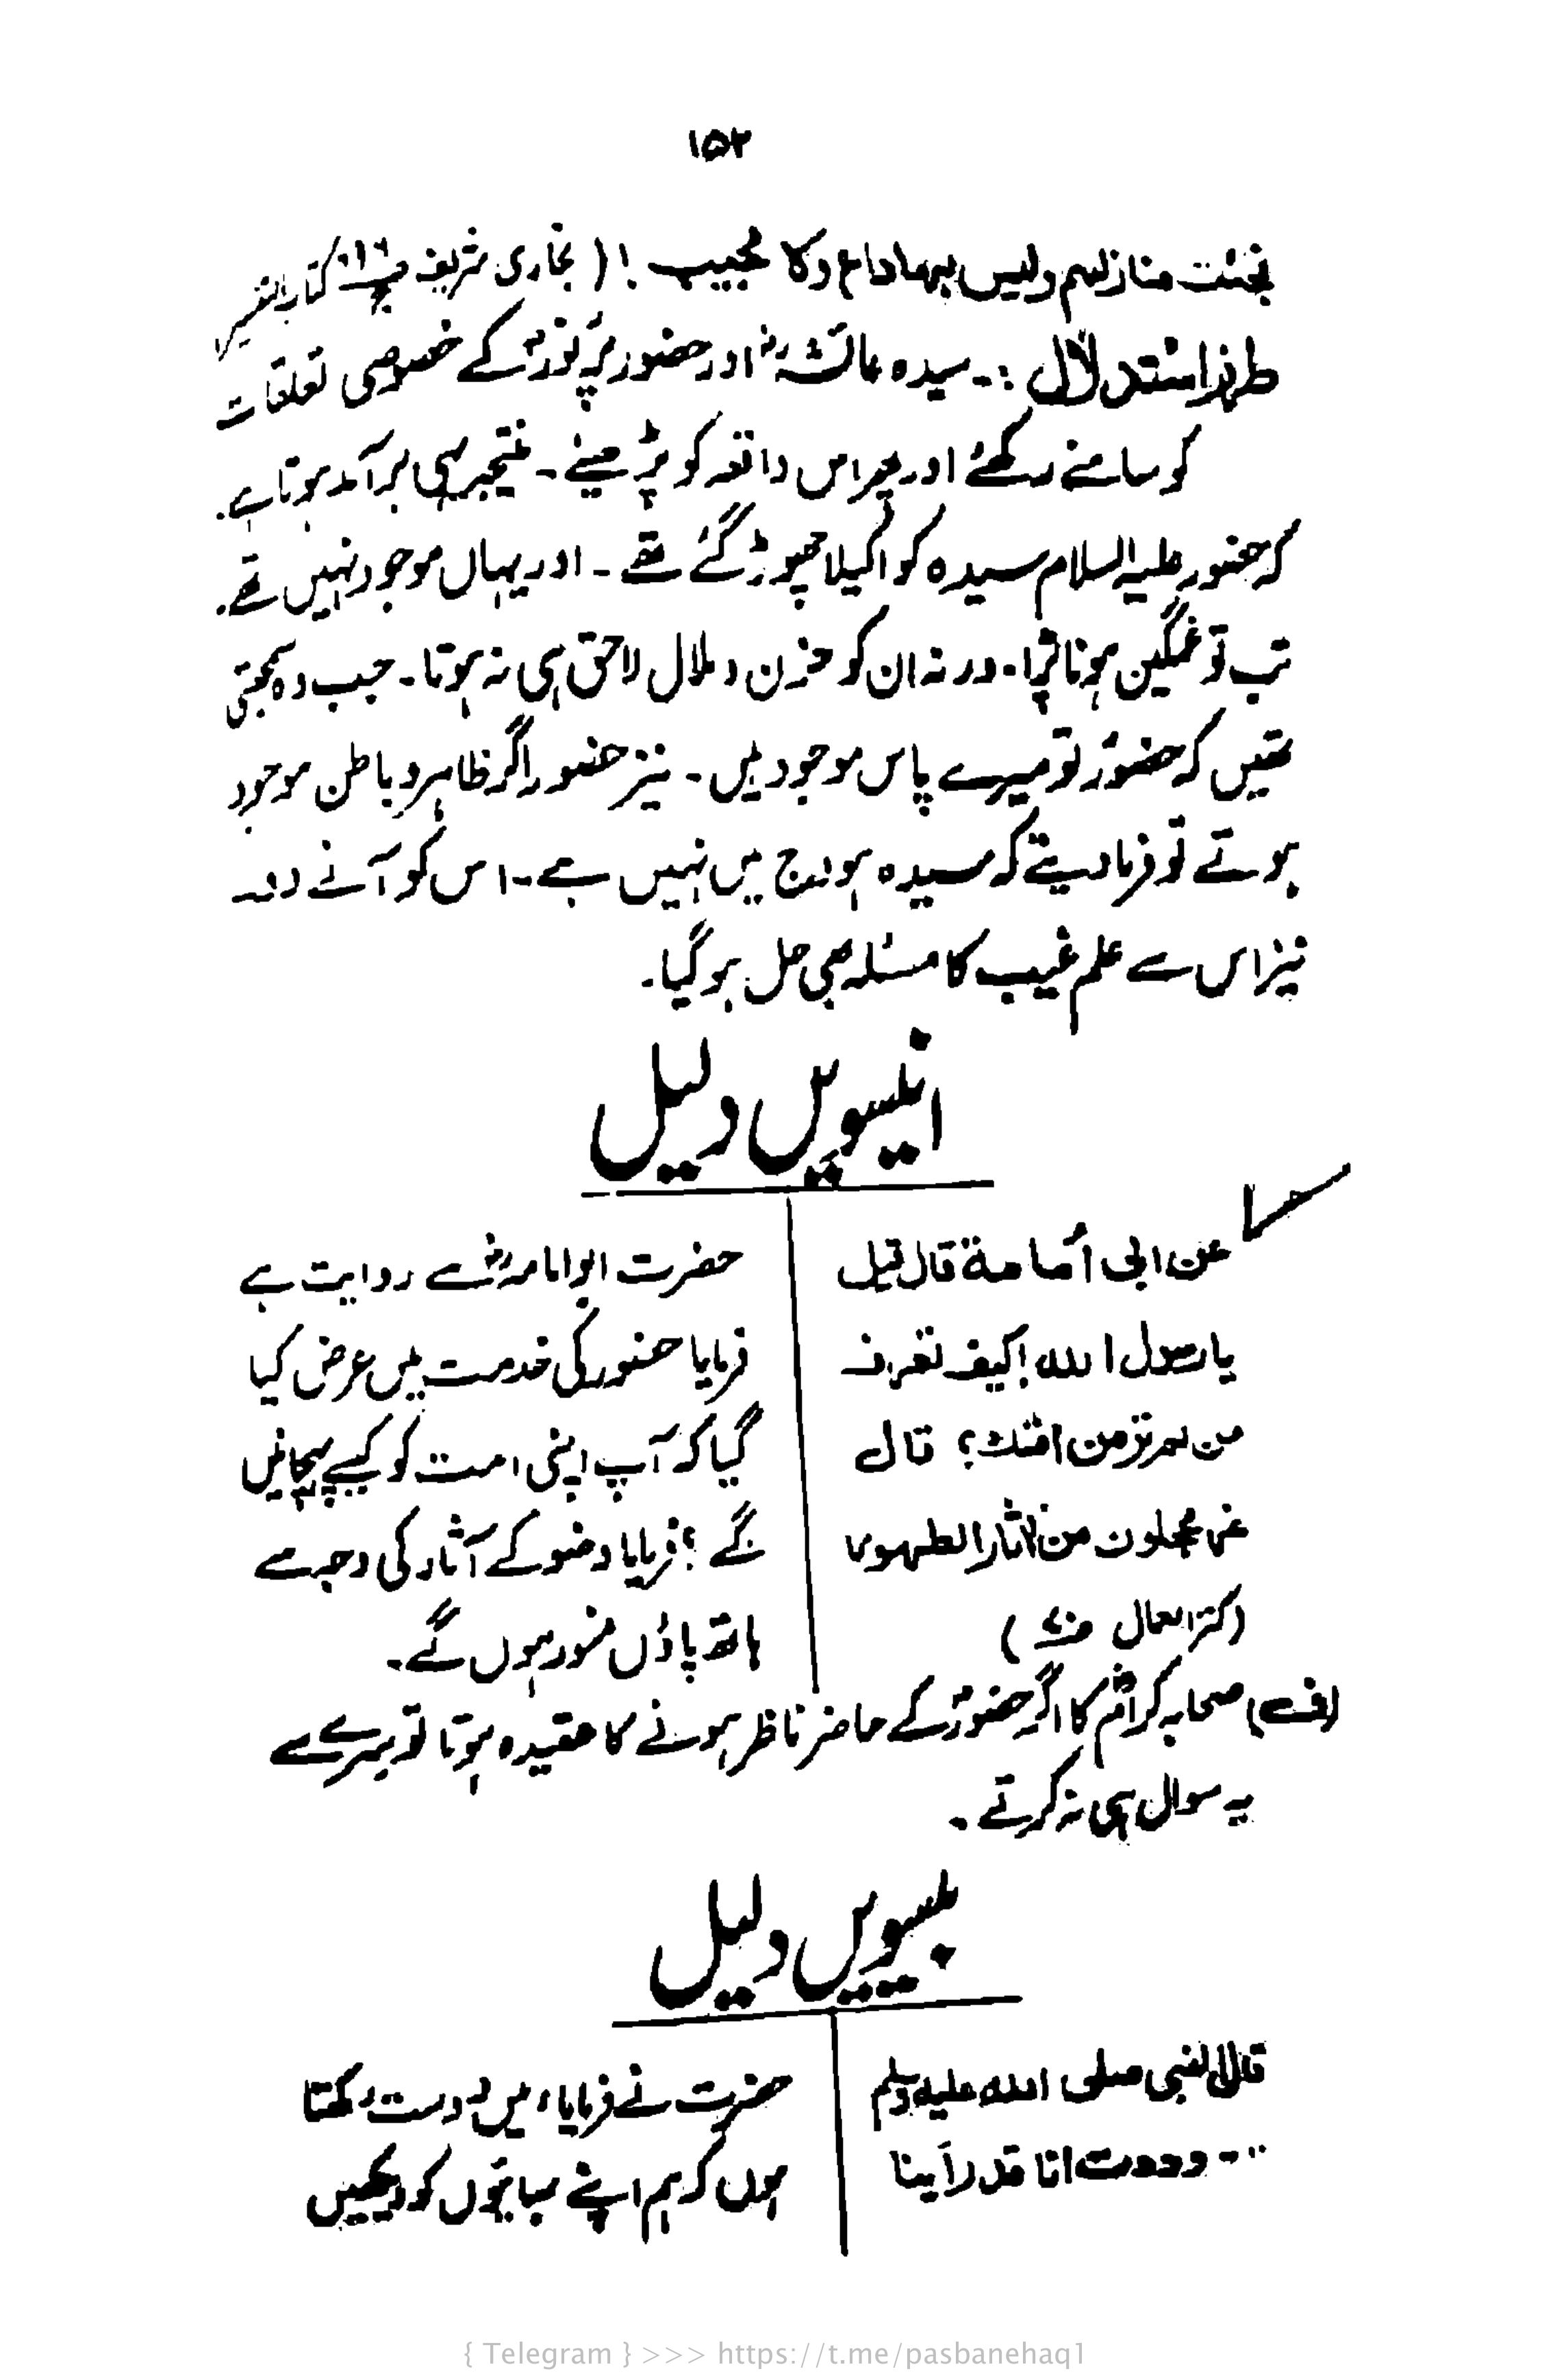 ۱۵۲
فجئت منازلهم وليس بها داع ولا مجيب ! ( بخاری شریف
طرز استدلال :- سیدہ عائشہؓ اور حضور پرنورؐ کے خصوصی تعلقات
کو سامنے رکھئے اور پھر اس واقعہ کو پڑھیئے - نتیجہ یہی برآمد ہوتا ہے.
کہ حضور علیہ السلام سیدہ کو اکیلا چھوڑ گئے تھے - اور یہاں موجود نہیں تھے.
تب تو غمگین ہونا پڑا - ورنہ ان کو حزن و ملال لاحق ہی نہ ہوتا - جب وہ سمجھتی
تھیں کہ حضورؐ تو میرے پاس موجود ہیں - نیز حضور اگر ظاہر و باطن موجود
ہوتے تو فرما دیتے کہ سیدہ ہودج میں نہیں ہے - اس کو آنے دو
نیز اس سے علم غیب کا مسئلہ بھی حل ہو گیا .
انیسویں دلیل
عن ابی اُمامة قال قیل
یا رسول الله ! کیف تعرف
من لم تر من امتك ؟ قال
غر محجلون من اٰثار الطهور
(کنز العمال )
حضرت ابو امامہؓ سے روایت ہے
فرمایا حضور کی خدمت میں عرض کیا
گیا کہ آپ اپنی امت کو کیسے پہچانیں
گے ؟ فرمایا وضو کے آثار کی وجہ سے
ہاتھ پاؤں منور ہوں گے .
(ف) صحابہ کرامؓ کا اگر حضورؐ کے حاضر ناظر ہونے کا عقیدہ ہوتا تو سرے سے
یہ سوال ہی نہ کرتے .
بیسویں دلیل
قال النبی صلی الله علیہ وسلم
... وددت انا قد رأینا
حضرت نے فرمایا، میں دوست رکھتا
ہوں کہ ہم اپنے بھائیوں کو دیکھیں
{ Telegram } >>> https://t.me/pasbanehaq1